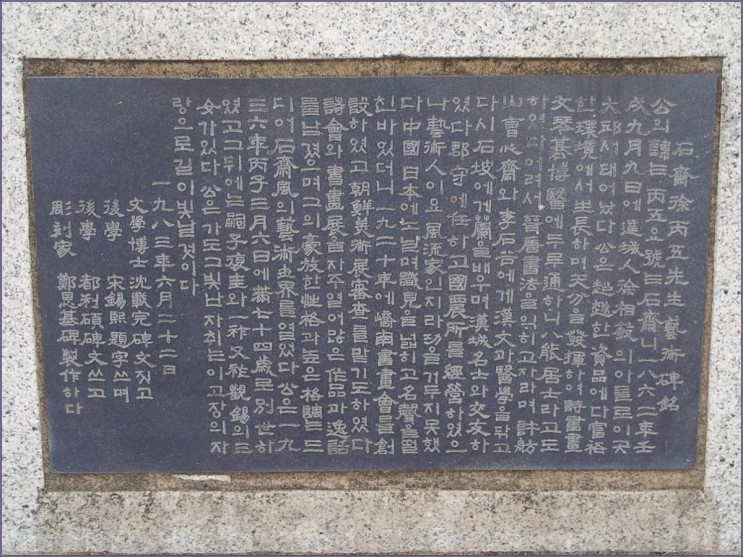 石齋徐丙五先生藝術碑銘
公의諱는丙五요號는石齋니一八六二年壬
戌九月九日에達城人徐相 의아들로이곳
大邱서태어났다公은超越한資品에다富裕
한環境에서生長하며天分을發揮하여詩書畫
文琴碁博醫에두루通하니八能居士라고도
하였다어려서 晉唐書法을익히고자라며許舫
山曺心齋와李石谷에게漢文과醫學을닦고
다시石坡에게蘭을배우며漢城名士와交友하
였다郡守에任하고國農所를經營하였으
나藝術人이요風流家인지라뜻을거두지못했
다中國日本에노닐며識見을넓히고名聲을떨
친바있더니一九二0年에嶠南書畫會를創
設하였고朝鮮美術展審査를맡기도하였다
詩會와書畫展을자주열어많은作品과逸話
를남겼으며그의豪放한性格과높은格調는드
디어石齋風의藝術世界를열었다公은一九
三六年丙子三月六日에 七十四歲로別世하
였고그뒤에는嗣子復圭와一 又 觀錫의三
女가있다公은가도그빛난자취는이고장의자
랑으로길이빛날것이다
一九八三年六月二十二日
文學博士沈載完碑文짓고
後學 宋錫熙題字쓰며
後學 都利碩碑文쓰고
彫刻家 鄭恩基碑製作하다